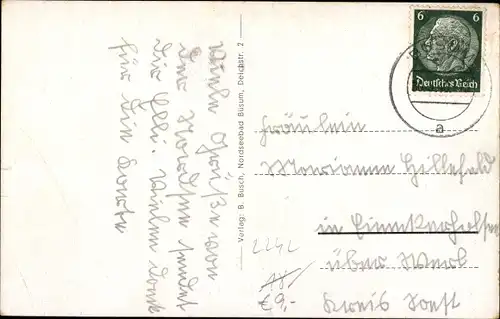 Viele Grüße von
der Nordsee sendet
Dir Elli. Vielen Dank
für Die Karte
Verlag: B. Busch, Nordseebad Büsum, Deichstr. 2
6 6
Deutsches Reich
a
Fräulein
Marianne Hillefeld
in
über Werl
Kreis Soest
2242
9,-